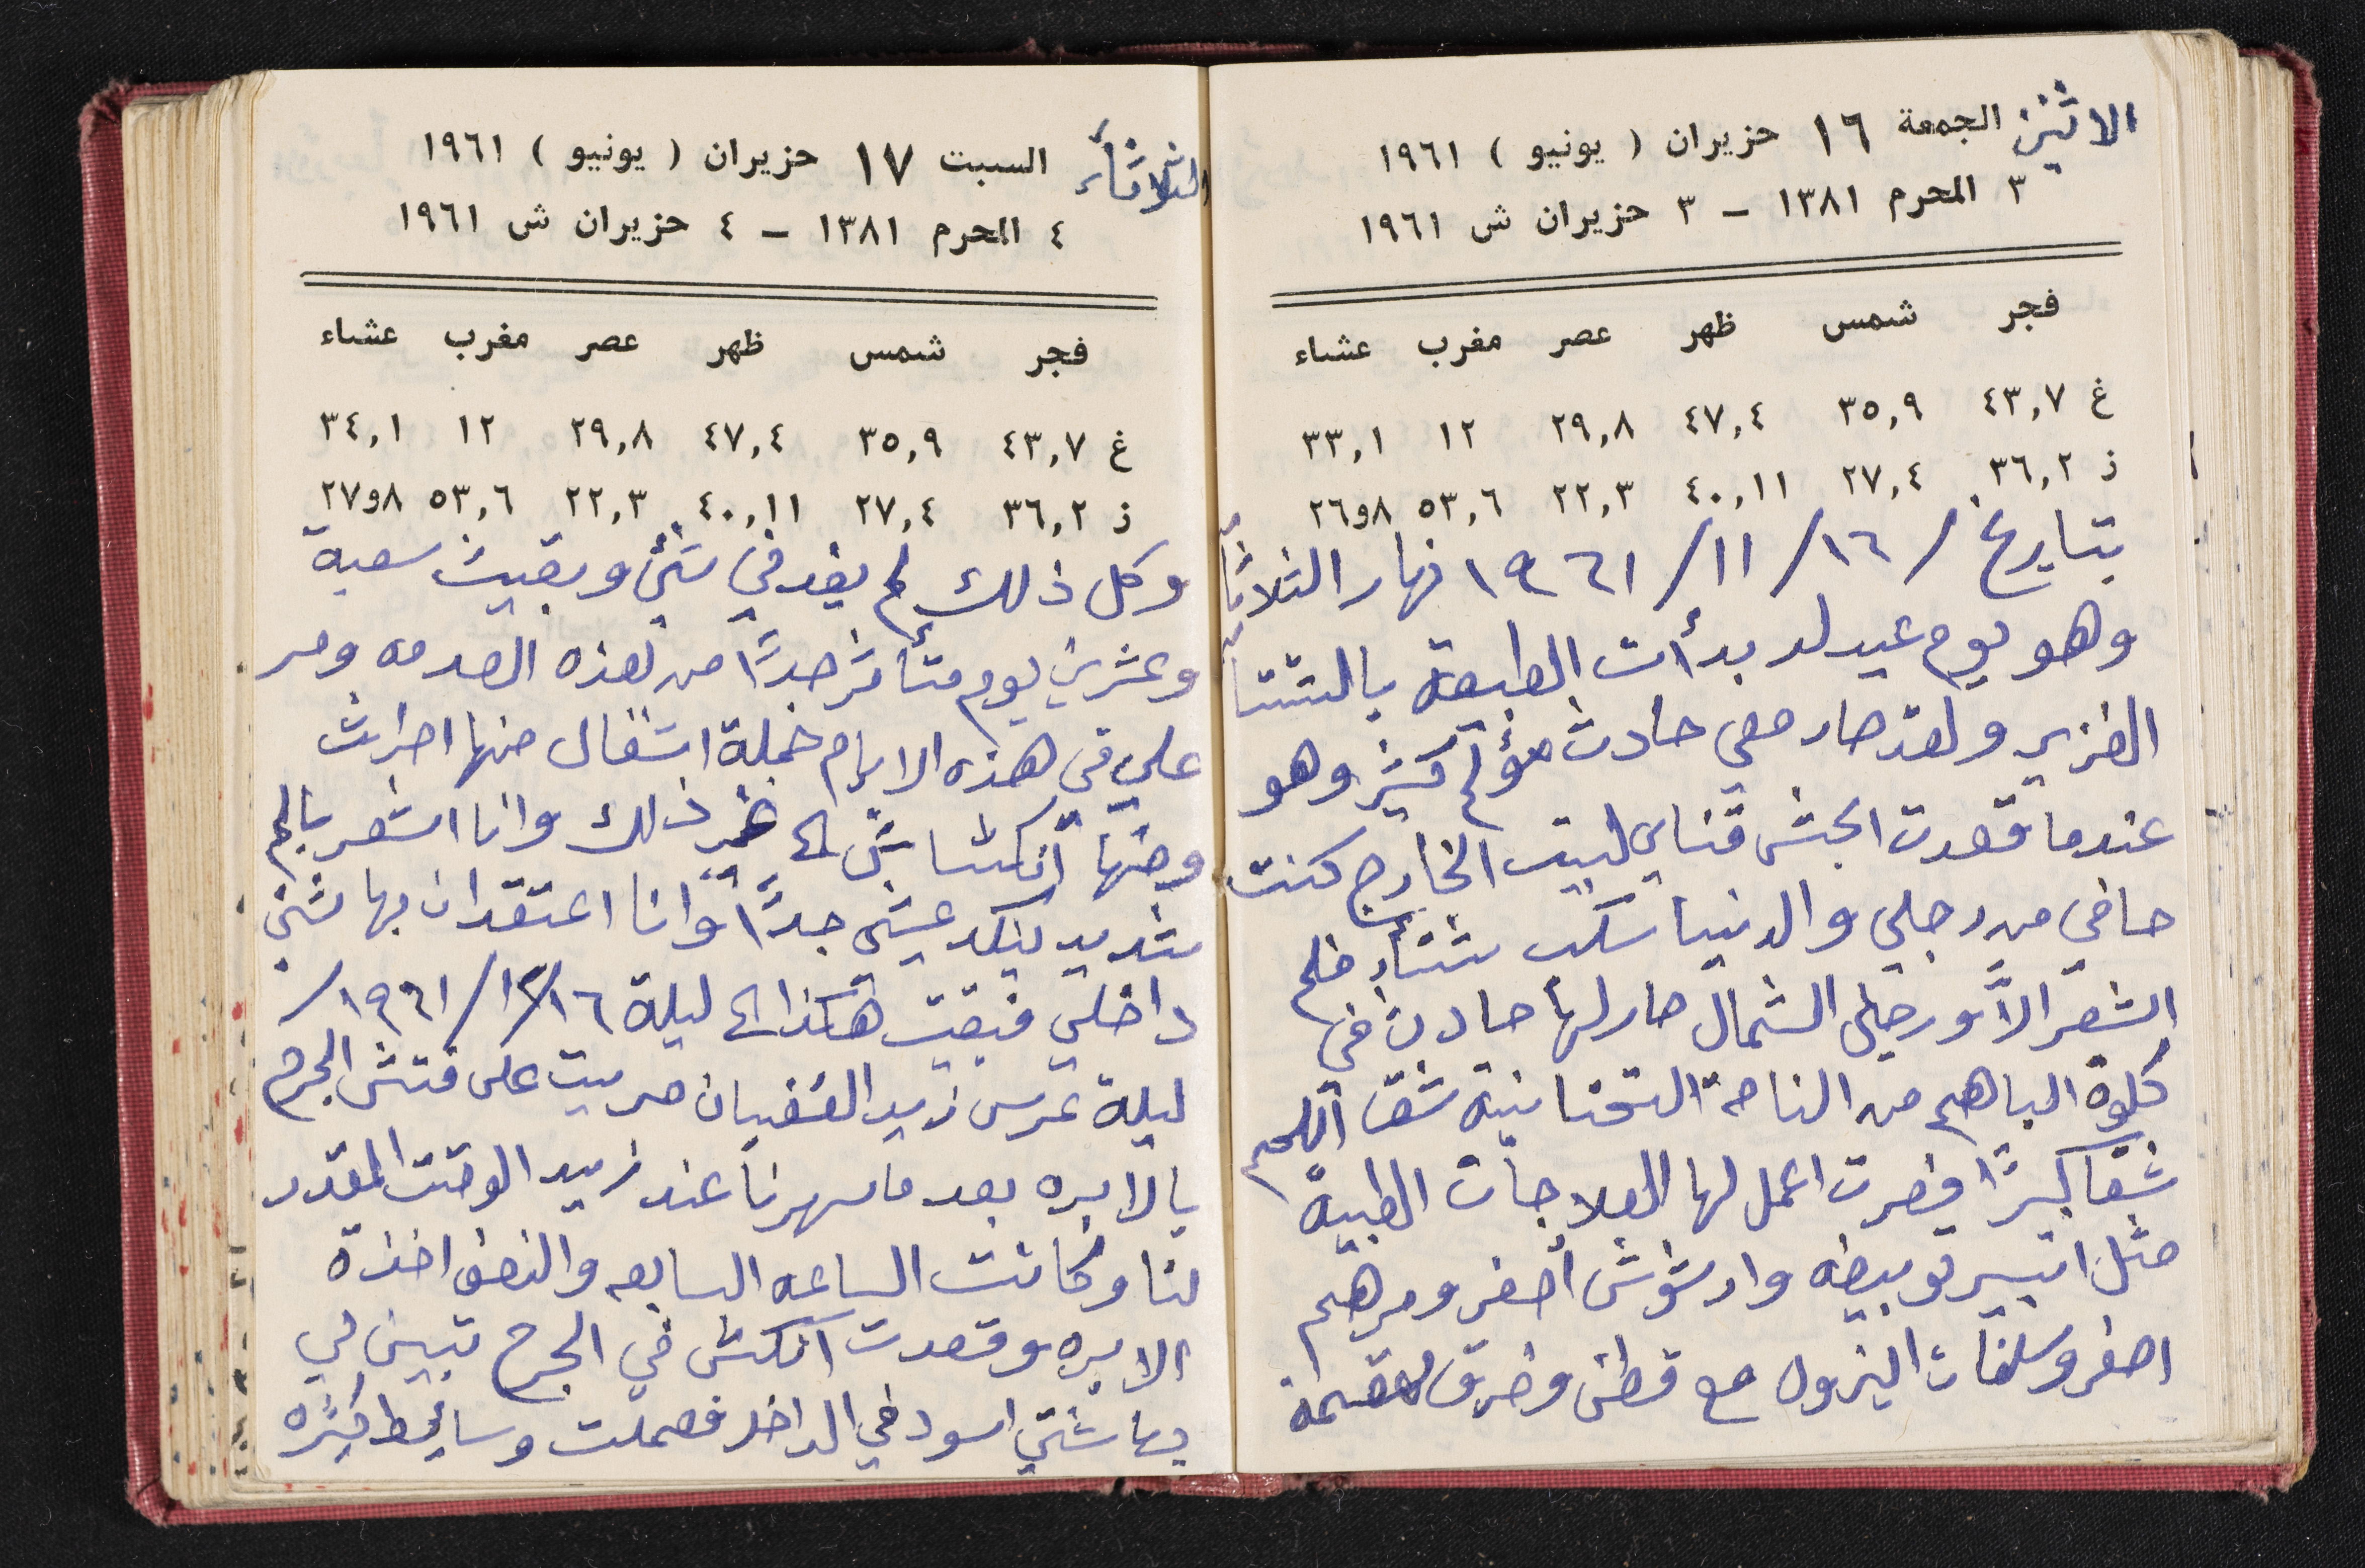 الاثنين الجمعة ١٦ حزيران ( يونيو ) ١٩٦١
٣ المحرم ١٣٨١ – ٣ حزيران ش ١٩٦١
فجر شمس ظهر عصر مغرب عشاء
غ ٤٣,٧ ٣٥,٩ ٤٧,٤ ٢٩,٨ ١٢ ٣٣,١
ز ٣٦,٢ ٢٧,٤ ٤٠,١١ ٢٢,٣ ٥٣,٦ ٨و٢٦
بتاريخ / ١٦/ ١١/ ١٩٦١ نهار الثلاثاء
وهو يوم عيد لد بدأت الطبيعة بالشتاء
الغزير ولقد صار معي حادث مؤلم كثير وهو
عندما قعدت الجش قناي لبيت الخارج كنت
حافي من رجلي والدنيا سكب شتاء فلم
اشعر الاّ ورجلي الشمال صار لها حادث في
كلوة الباهم من الناحة التحتانية شق اللحم
شقا كبيرًا فصرت اعمل لها العلاجات الطبية
مثل اسبيرتو بيضه وادشوش أصفر ومرهم
اصفر وسلفات الينرول مع قطن وخرق معقمة
الثلاثاء السبت ١٧ حزيران ( يونيو ) ١٩٦١
٤ المحرم ١٣٨١ – ٤ حزيران ش ١٩٦١
فجر شمس ظهر عصر مغرب عشاء
غ ٤٣,٧ ٣٥,٩ ٤٧,٤ ٢٩,٨ ١٢ ٣٤,١
ز ٣٦,٢ ٢٧,٤ ٤٠,١١ ٢٢,٣ ٥٣,٦ ٨و٢٧
وكل ذلك لم يفدني شئ وبقيت سعبة
وعشرين يوم متأثر جدًا من هذه الصدمه ومر
علي في هذه الايام جملة اشغال منها احراث
ومنها أنكتاش الى غير ذلك وانا اشعر بالم
شديد ينكد عيشي جدًا وانا اعتقد ان بها شئ
داخلي فبقيت هكذا الى ليلة ١٦/ ١٢/ ١٩٦١/
ليلة عرس زيد الغضبان مريت على فتش الجرح
بالابره بعد ما سهرنا عند زيد الوقت المقدر
لنا وكانت الساعه السابعه والنصف اخذة
الابره وقعدت انكش في الجرح تبين لي
بها شئ اسود في الداخل فعملت وسايط كثيره